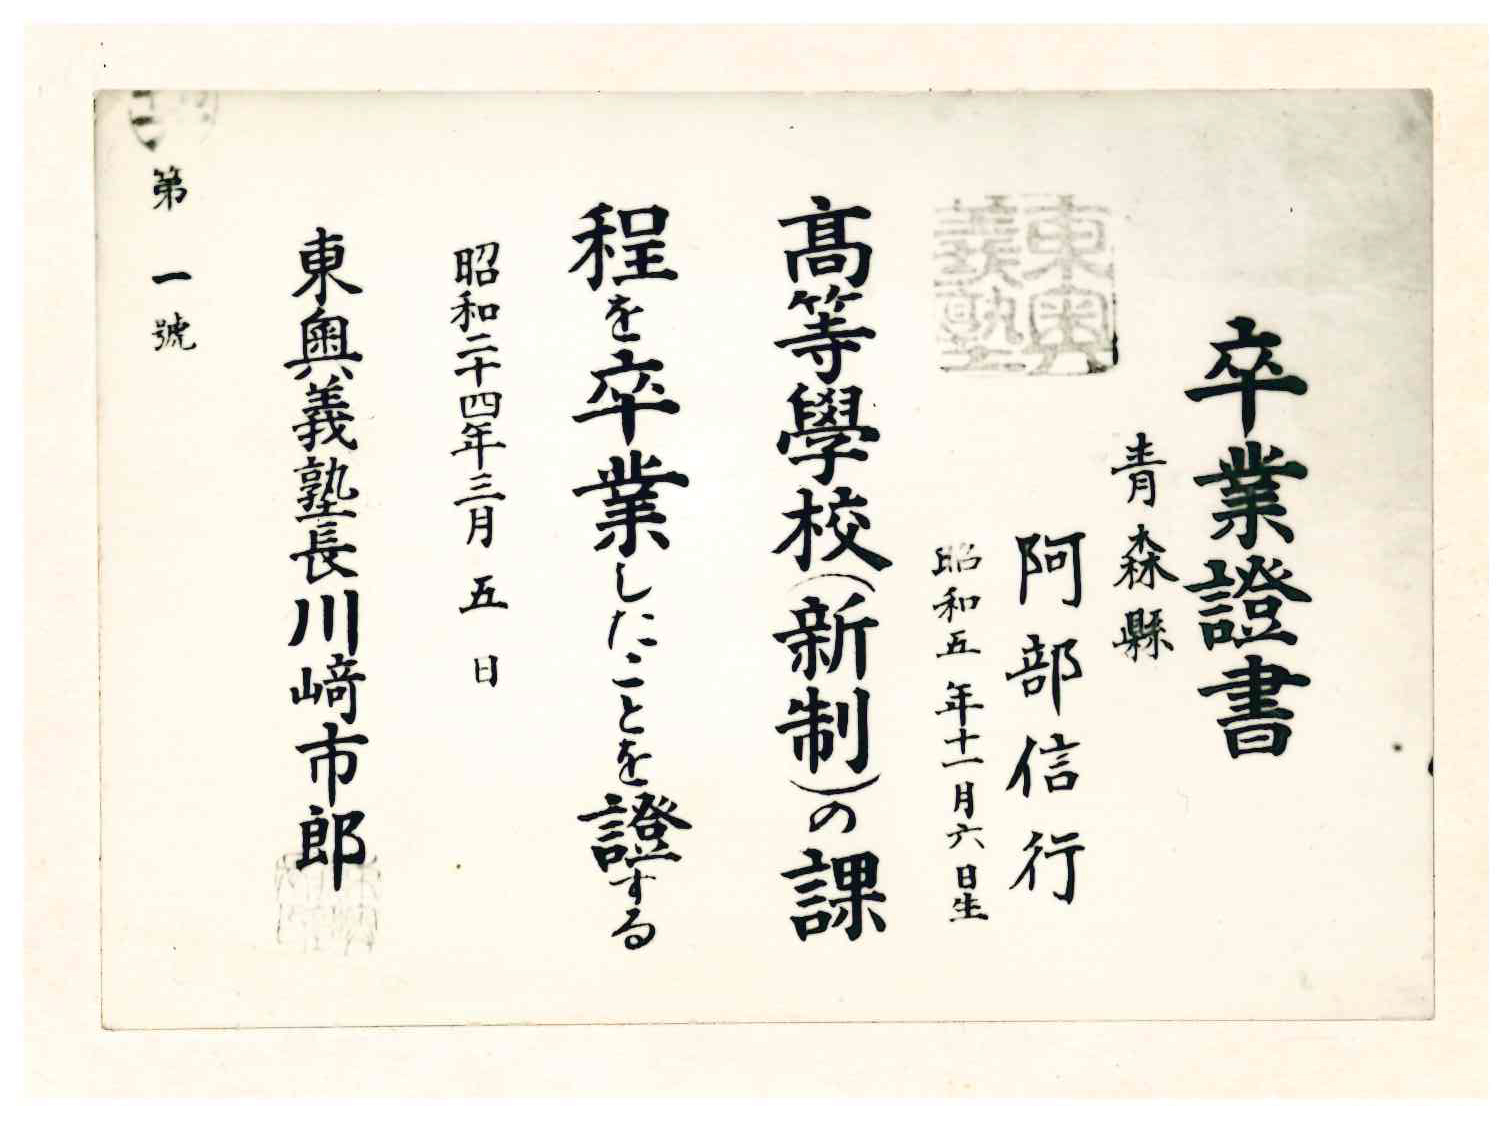 卒業證書
青森縣
阿部信行
昭和五年十一月六日生
東奥
義塾
髙等學校(新制)の課
程を卒業したことを證する
昭和二十四年三月五日
東奥義塾長川﨑市郎
第一號